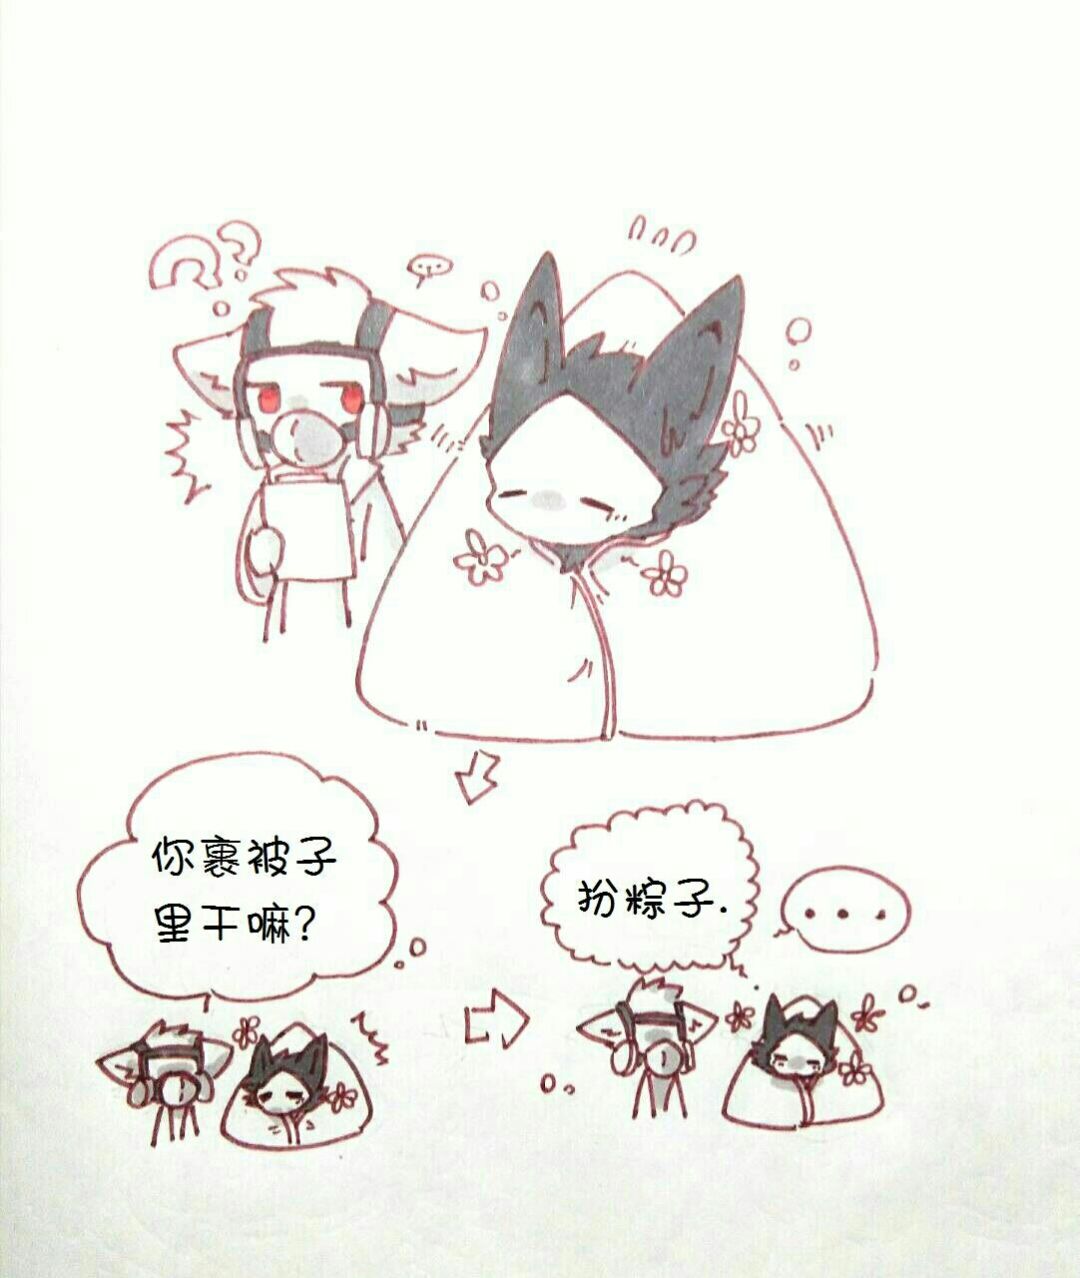 ??
你裹被子
里干嘛?
扮粽子.
...